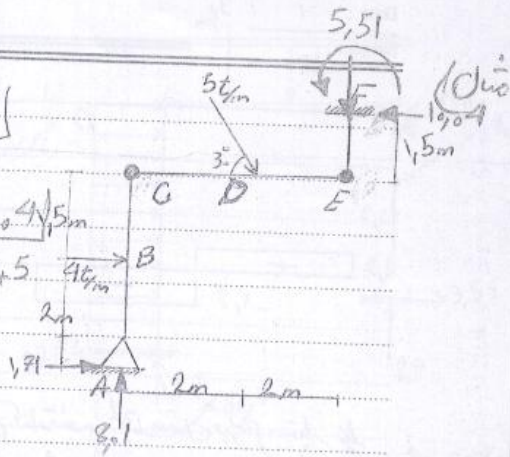 5,51
5t/m
F
10,04
1,5m
3
C
D
E
1,5m
4t/m
B
+5
2m
1,71
A
2m
2m
8,01